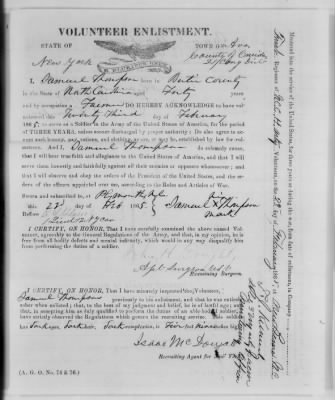 VOLUNTEER ENLISTMENT.
STATE OF TOWN OF Ava
New York County of Oneida
21st Cong Dist
I, Samuel Thompson born in Bertie County
in the State of North Carolina aged Forty years
and by occupation a Farmer DO HEREBY ACKNOWLEDGE to have vol-
unteered this Twenty Third day of February
1865, to serve as a Soldier in the Army of the United States of America, for the period
of THREE YEARS, unless sooner discharged by proper authority: Do also agree to ac-
cept such bounty, pay, rations, and clothing, as are, or may be, established by law for vol-
unteers. And I, Samuel Thompson do solemnly swear,
that I will bear true faith and allegiance to the United States of America, and that I will
serve them honestly and faithfully against all their enemies or opposers whomsoever; and
that I will observe and obey the orders of the President of the United States, and the or-
ders of the officers appointed over me, according to the Rules and Articles of War.
Sworn and subscribed to, at Plymouth, N.C.
this 23 day of Feb 1865 Samuel X Thompson
Before mark
I CERTIFY, ON HONOR, That I have carefully examined the above named Vol-
unteer, agreeably to the General Regulations of the Army, and that, in my opinion, he is
free from all bodily defects and mental infirmity, which would in any way disqualify him
from performing the duties of a soldier.
Examining Surgeon.
I CERTIFY, ON HONOR, That I have minutely inspected the Volunteer,
Samuel Thompson previously to his enlistment, and that he was entirely
sober when enlisted; that, to the best of my judgment and belief, he is of lawful age; and
that, in accepting him as duly qualified to perform the duties of an able-bodied soldier, I
have strictly observed the Regulations which govern the recruiting service. This soldier
has Dark eyes, Dark hair, Dark complexion, is Five feet inches high.
Isaac McDougall
Recruiting Agent
(A. G. O. No. 74 & 76.)
Mustered into the service of the United States, for three years or during the war, from date of enlistment, in Company
Regiment of Volunteers, on the 23 day of February 1865, at